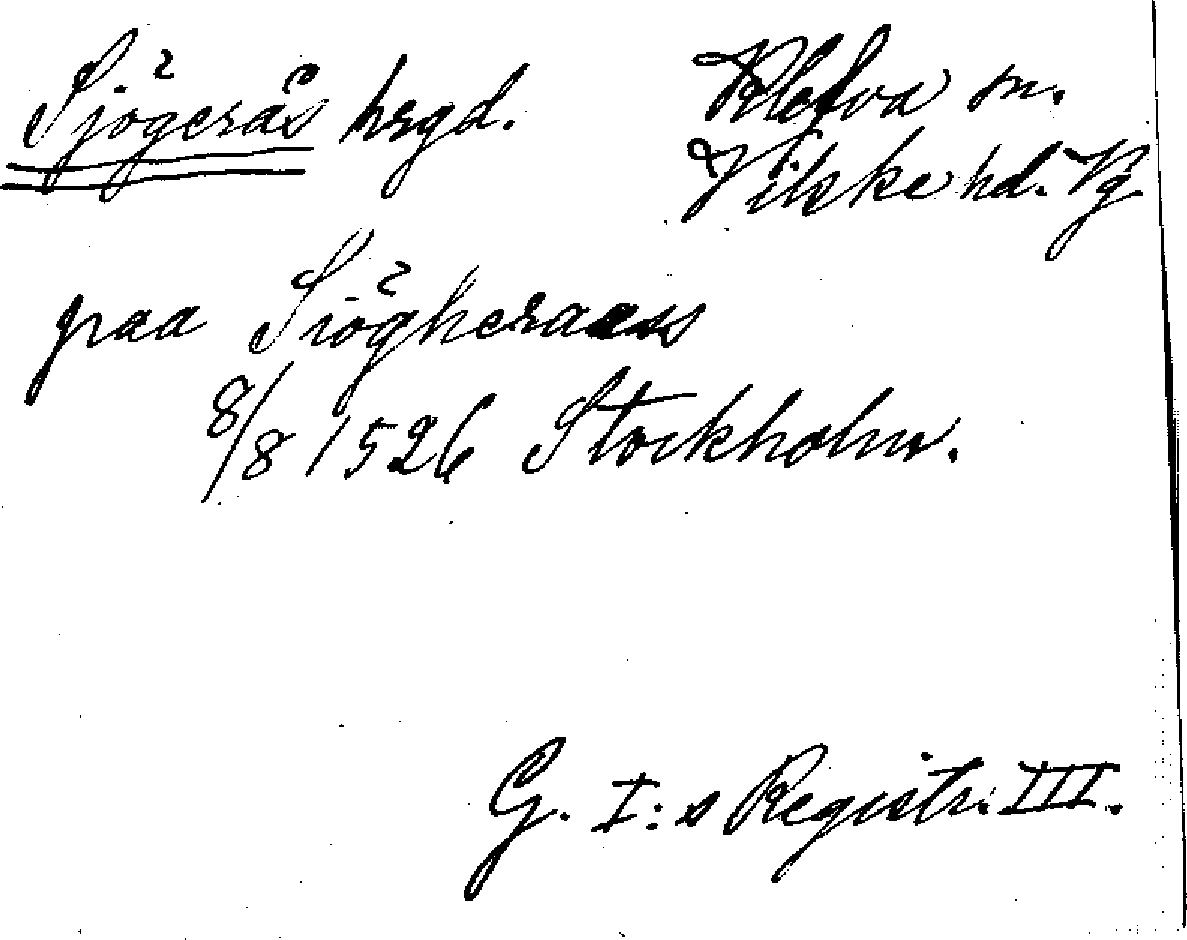 Sjögerås hrgd. Klefva sn.
Vilske hd. Vg
paa Siögheraess
8/8 1526 Stockholm.
G. I:s Registr. III.